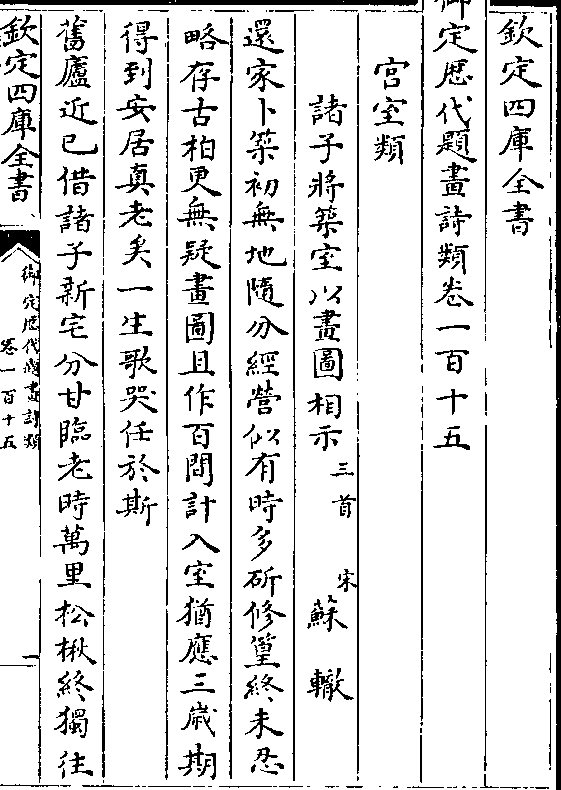 欽定四庫全書
御定歷代題畫詩類卷一百十五
宮室類
諸子將築室以畫圖相示三首 宋蘇轍
還家卜築初無地隨分經營似有時多斫修篁終未忍
略存古柏更無疑畫圖且作百間計入室猶應三歲期
得到安居真老矣一生歌哭任於斯
舊廬近已借諸子新宅分甘臨老時萬里松楸終獨往
欽定四庫全書
御定歷代題畫詩類
卷一百十五
一